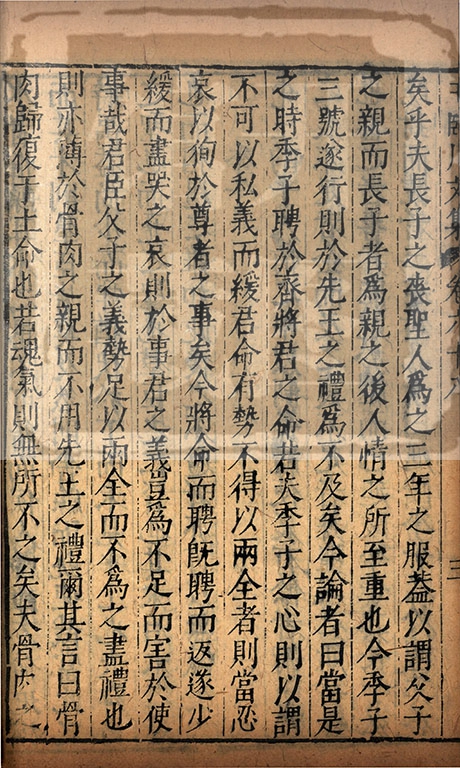 王臨川文集 卷六十八
三
矣乎夫長子之喪聖人爲之三年之服蓋以謂父子
之親而長子者爲親之後人情之所至重也今季子
三號遂行則於先王之禮爲不及矣今論者曰當是
之時季子聘於齊將君之命若夫季子之心則以謂
不可以私義而緩君命有勢不得以兩全者則當忍
哀以徇於尊者之事矣今將命而聘旣聘而返遂少
緩而盡哭之哀則於事君之義豈爲不足而害於使
事哉君臣父子之義勢足以兩全而不爲之盡禮也
則亦薄於骨肉之親而不用先王之禮爾其言曰骨
肉歸復于土命也若魂氣則無所不之矣夫骨肉之